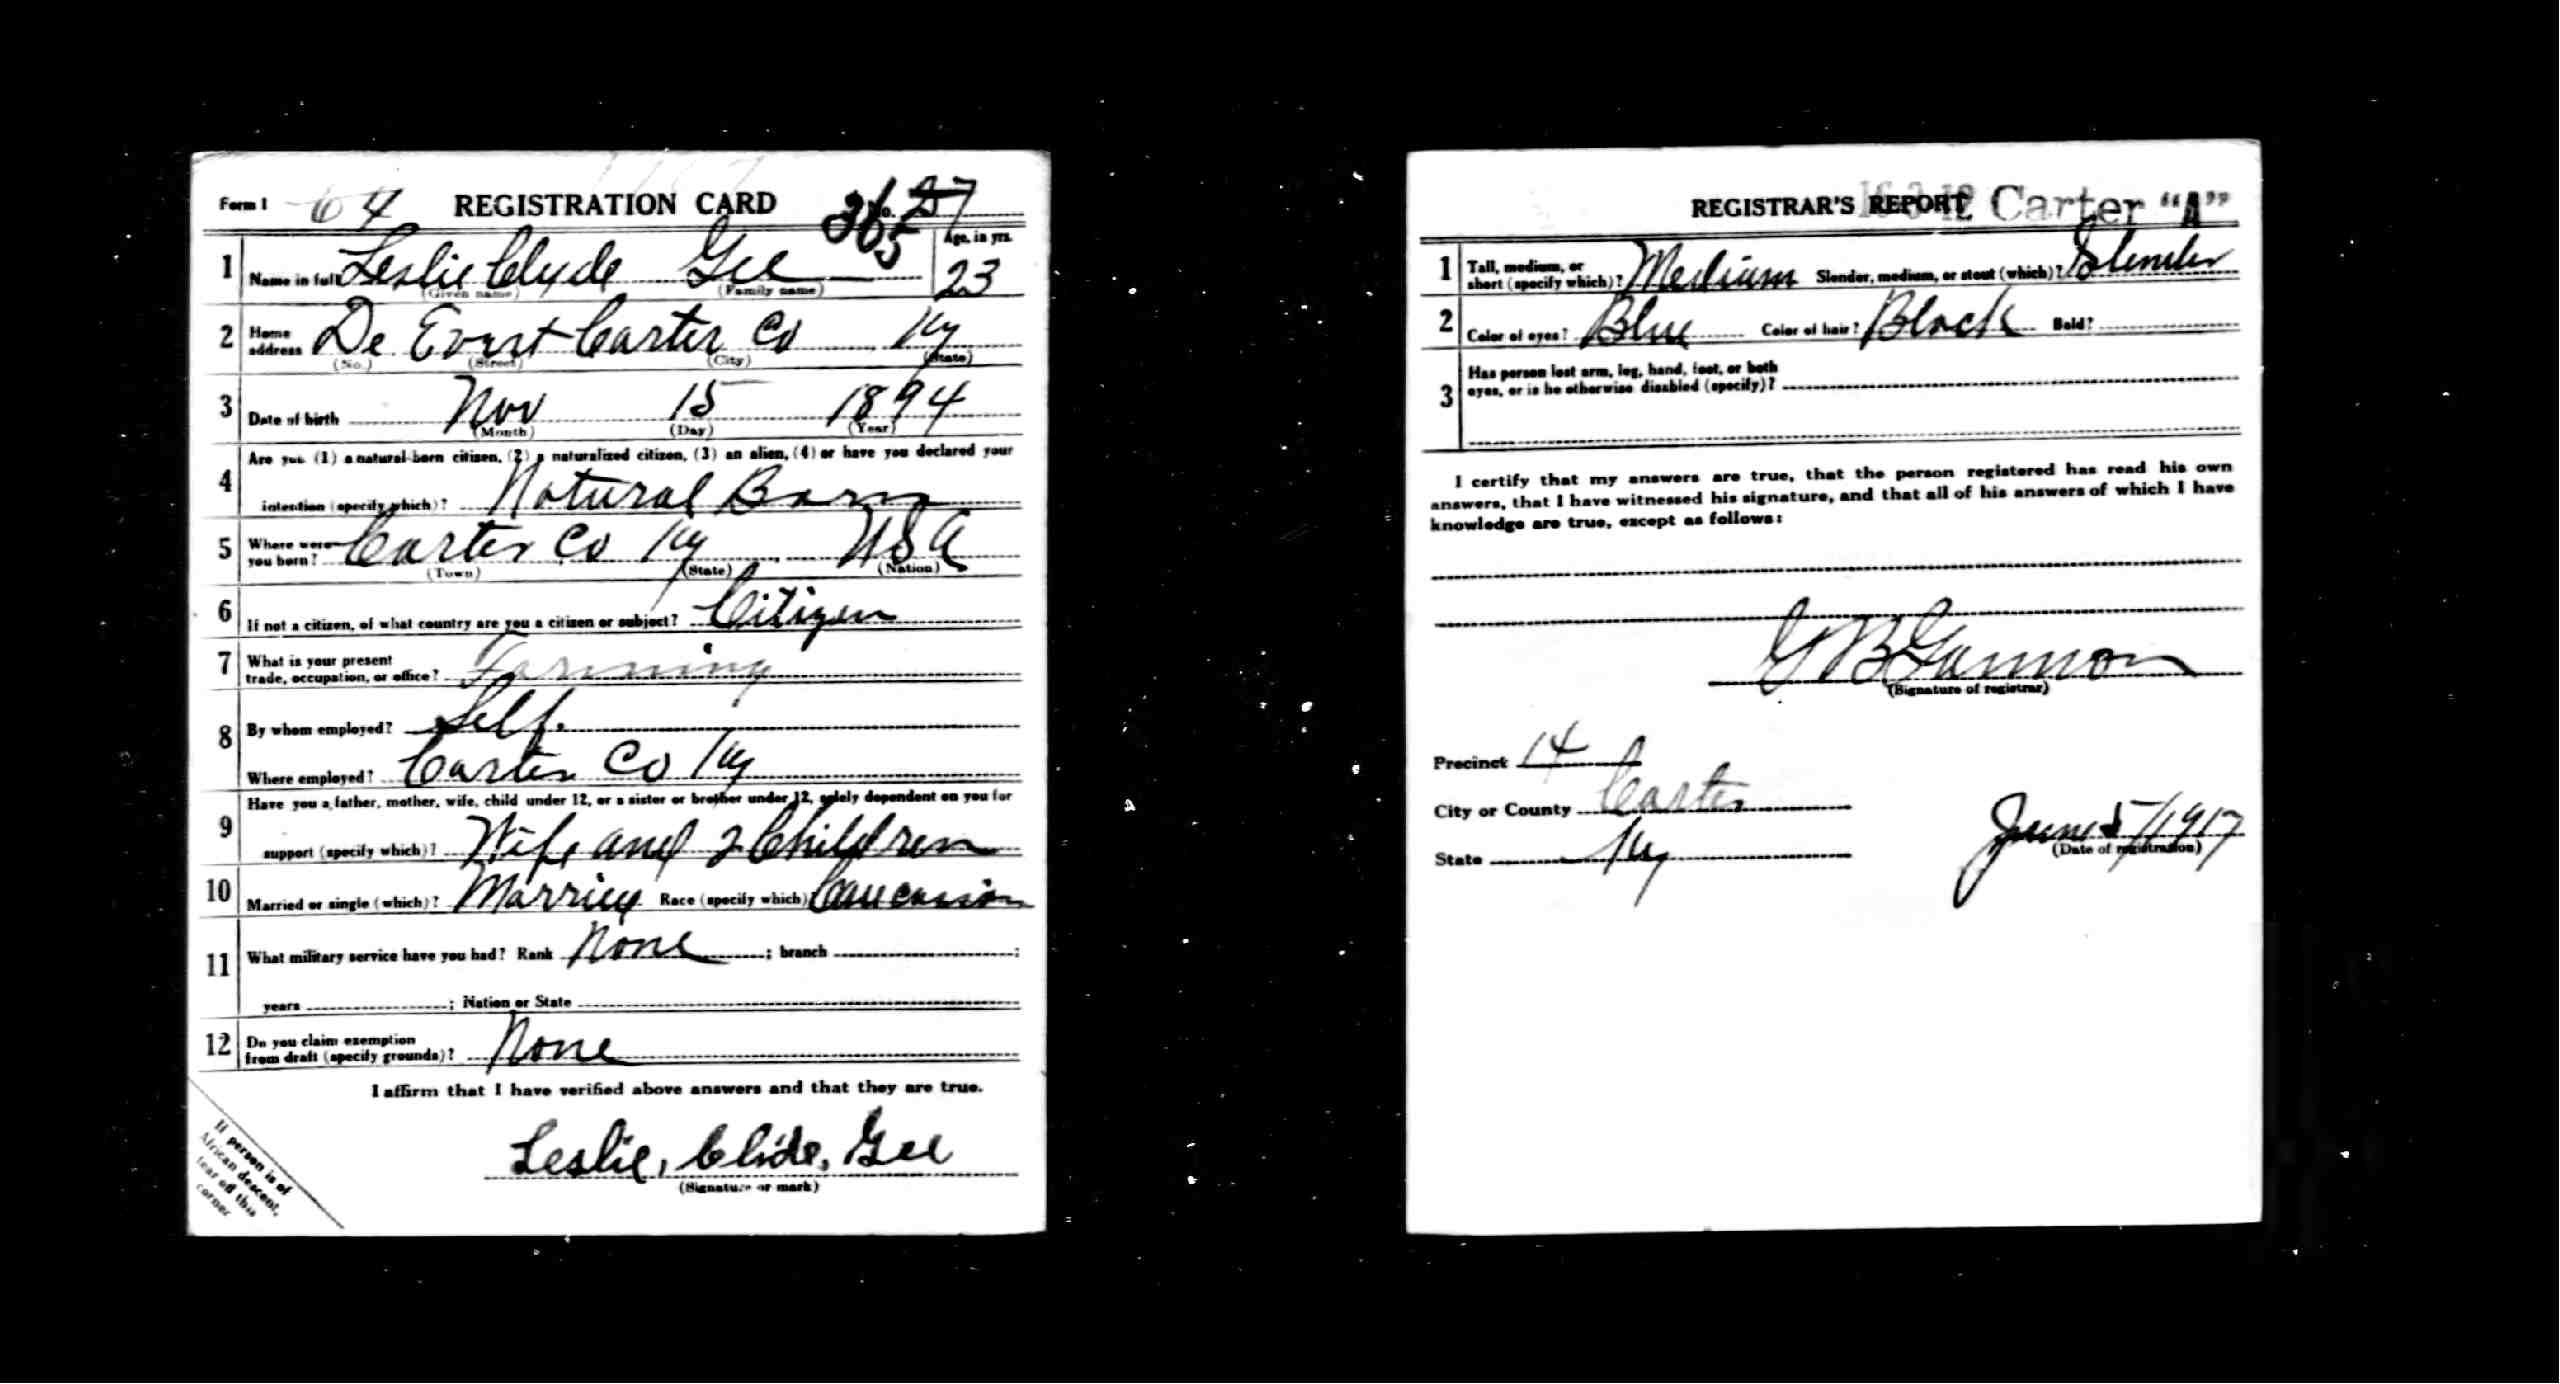 Form 1 64 REGISTRATION CARD No. 27
365
1 Name in full Leslie Clyde Gee Age, in yrs. 23
(Given name) (Family name)
2 Home address De Evert Carter Co Ky
(No.) (Street) (City) (State)
3 Date of birth Nov 15 1894
(Month) (Day) (Year)
4 Are you (1) a natural-born citizen, (2) a naturalized citizen, (3) an alien, (4) or have you declared your
intention (specify which)? Natural Born
5 Where were you born? Carter Co Ky USA
(Town) (State) (Nation)
6 If not a citizen, of what country are you a citizen or subject? Citizen
7 What is your present
trade, occupation, or office? Farming
8 By whom employed? Self.
Where employed? Carter Co Ky
9 Have you a father, mother, wife, child under 12, or a sister or brother under 12, solely dependent on you for
support (specify which)? Wife and 2 Children
10 Married or single (which)? Married Race (specify which) Caucasian
11 What military service have you had? Rank None ; branch ;
years ; Nation or State
12 Do you claim exemption
from draft (specify grounds)? None
I affirm that I have verified above answers and that they are true.
Leslie, Clide, Gee
(Signature or mark)
If person is of
African descent,
tear off this
corner
REGISTRAR'S REPORT Carter "A"
1 Tall, medium, or
short (specify which)? Medium Slender, medium, or stout (which)? Slender
2 Color of eyes? Blue Color of hair? Black Bald?
3 Has person lost arm, leg, hand, foot, or both
eyes, or is he otherwise disabled (specify)?
I certify that my answers are true, that the person registered has read his own
answers, that I have witnessed his signature, and that all of his answers of which I have
knowledge are true, except as follows:
G B Gannon
(Signature of registrar)
Precinct 14
City or County Carter
State Ky
June 5/1917
(Date of registration)